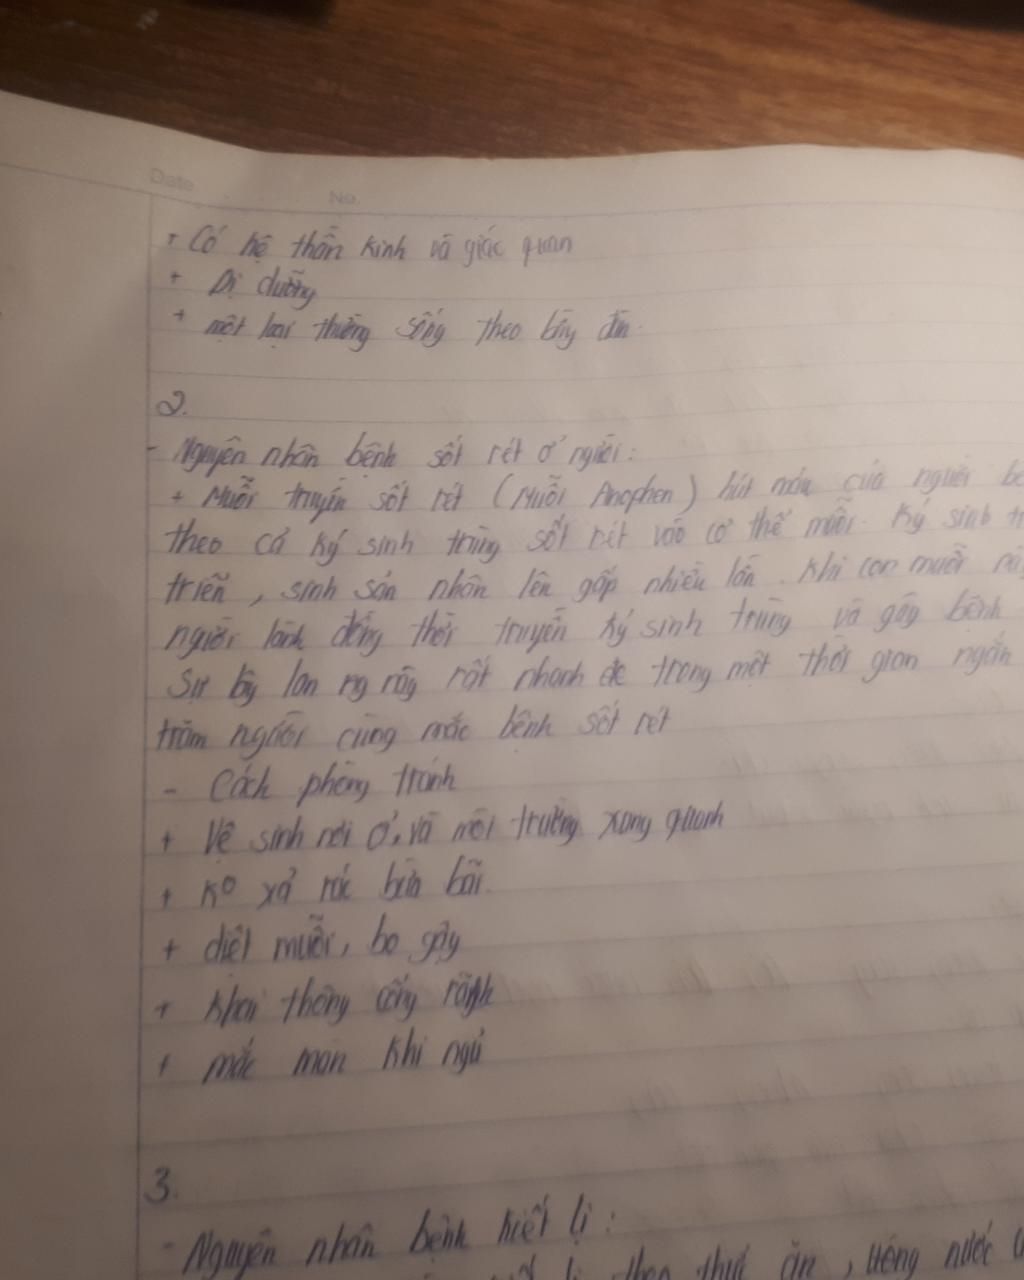 Date No.
+ Có hệ thần kinh và giác quan
+ Dị dưỡng
+ một loại thường sống theo bầy đàn
2.
- Nguyên nhân bệnh sốt rét ở người:
+ Muỗi truyền sốt rét (Muỗi Anophen) hút máu của người
theo cả ký sinh trùng sốt rét vào cơ thể muỗi. Ký sinh
triển, sinh sản nhân lên gấp nhiều lần. Khi con muỗi
người lành đồng thời truyền ký sinh trùng và gây bệnh
Sự lan rất nhanh trong một thời gian ngắn
trăm người cùng mắc bệnh sốt rét
- Cách phòng tránh
+ Vệ sinh nơi ở, và môi trường xong quanh
+ Ko xả rác bừa bãi.
+ diệt muỗi, bọ gậy
+ Khai thông cống rãnh
+ mắc màn khi ngủ
3.
- Nguyên nhân bệnh kiết lị:
lị theo thức ăn, uống nước